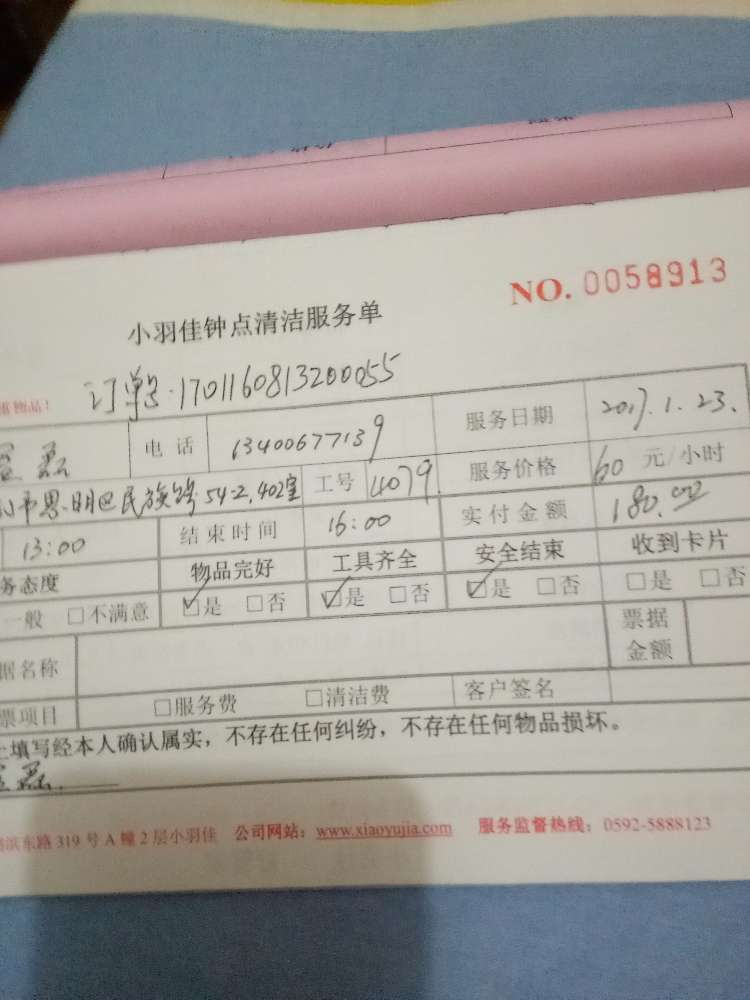 NO. 0058913
小羽佳钟点清洁服务单
订单号·1701160813200055
物品!
磊 电话 13400677139 服务日期 2017.1.23.
市思明区民族路54-2,402室 工号 4079 服务价格 60 元/小时
13:00 结束时间 16:00 实付金额 180.00
务态度 物品完好 工具齐全 安全结束 收到卡片
一般 □不满意 ☑是 □否 ☑是 □否 ☑是 □否 □是 □否
据名称 票据金额
票项目 □服务费 □清洁费 客户签名
上填写经本人确认属实，不存在任何纠纷，不存在任何物品损坏。
磊
滨东路 319 号 A 幢 2 层小羽佳 公司网站：www.xiaoyujia.com 服务监督热线：0592-5888123